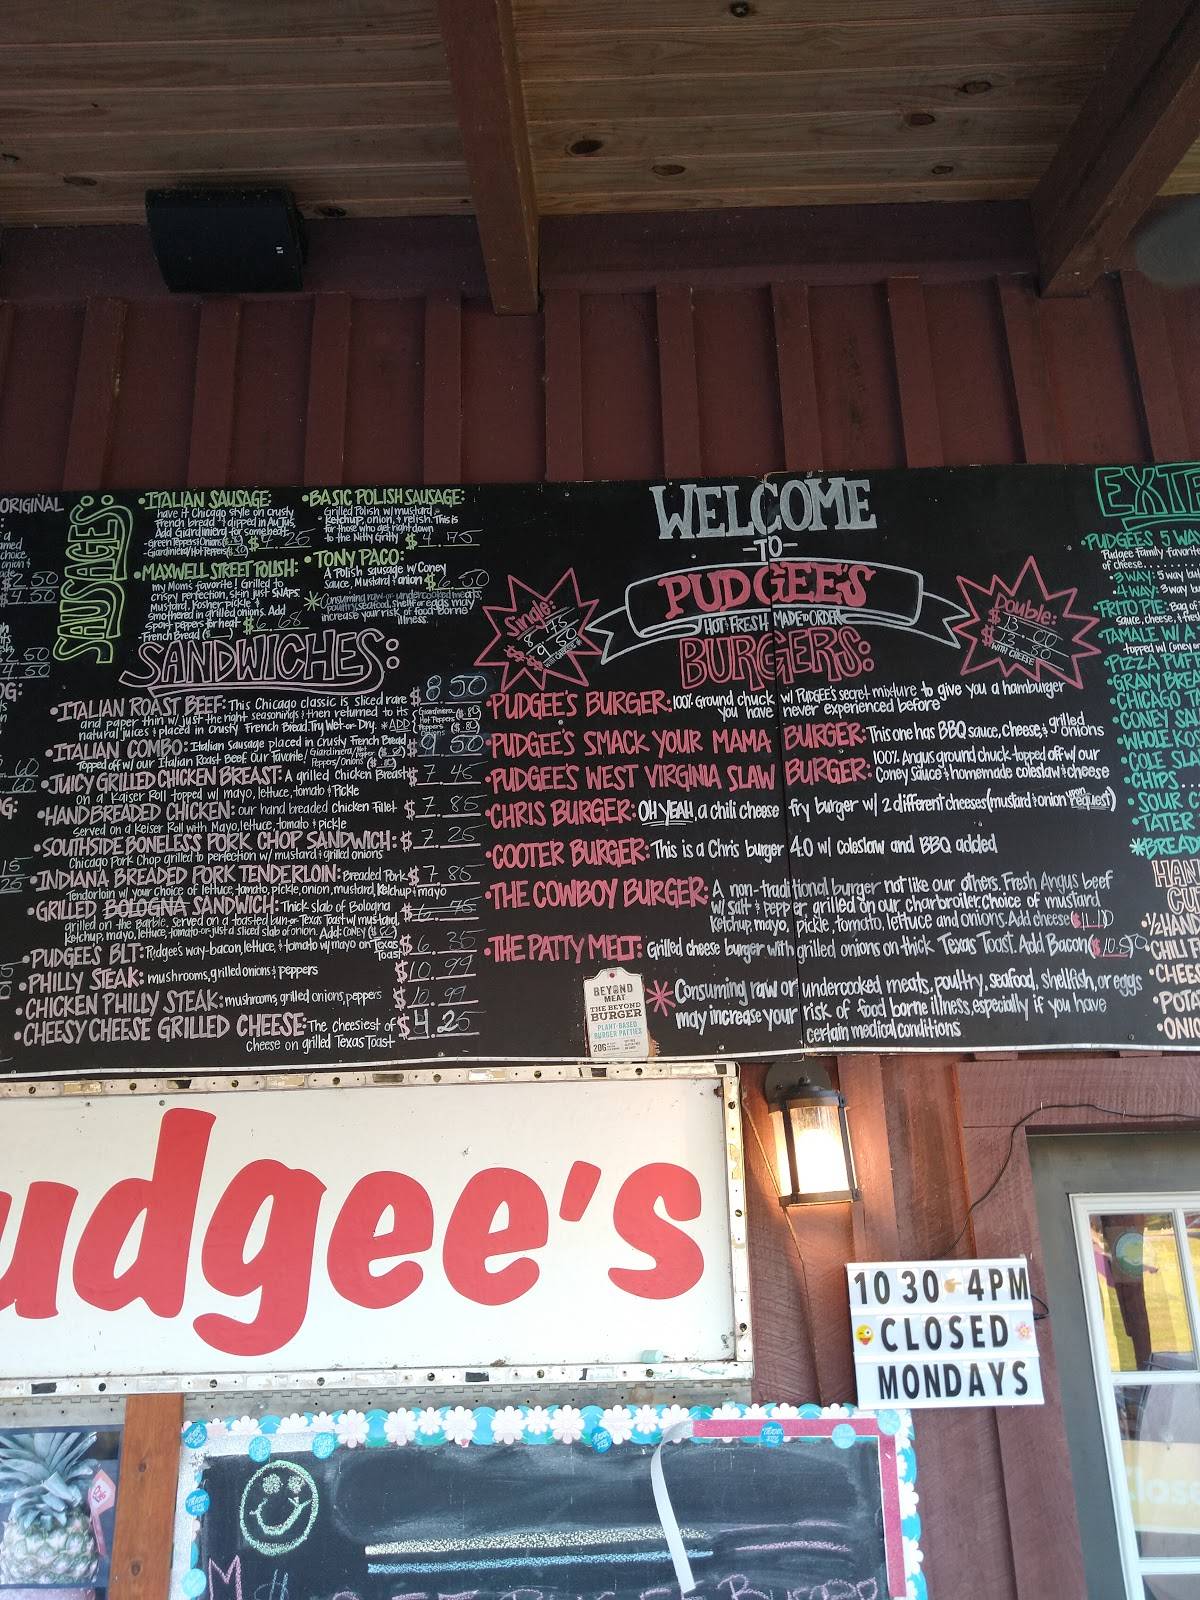 ORIGINAL
2.50
4.50
2.50
4.50
SAUSAGES:
•ITALIAN SAUSAGE:
have it Chicago style on crusty
French bread & dipped in Au Jus.
Add Giardiniera for some heat.
-Green Peppers/Onions
-Giardiniera/Hot Peppers
•MAXWELL STREET POLISH:
my Mom's favorite! Grilled to
crispy perfection, skin just SNAPS.
Mustard, Kosher pickle &
smothered in grilled onions. Add
sport peppers for heat
-French Bread
•BASIC POLISH SAUSAGE:
Grilled Polish w/ mustard,
ketchup, onion, & relish. This is
for those who get right down
to the Nitty Gritty $4.75
•TONY PACO:
A Polish sausage w/ Coney
Sauce, Mustard & onion
*Consuming raw or undercooked meats,
poultry, seafood, shellfish or eggs may
increase your risk of food borne
illness.
SANDWICHES:
•ITALIAN ROAST BEEF: This Chicago classic is sliced rare $8.50
and paper thin w/ just the right seasonings & then returned to its
natural juices & placed in crusty French Bread. Try Wet or Dry. *ADD
•ITALIAN COMBO: Italian Sausage placed in crusty French Bread $9.50
Topped off w/ our Italian Roast Beef Our favorite!
•JUICY GRILLED CHICKEN BREAST: A grilled chicken Breast $7.45
on a Kaiser Roll topped w/ mayo, lettuce, tomato & Pickle
•HAND BREADED CHICKEN: our hand breaded chicken Fillet $7.85
served on a Keiser Roll with Mayo, lettuce, tomato & pickle
•SOUTHSIDE BONELESS PORK CHOP SANDWICH: $7.25
Chicago Pork Chop grilled to perfection w/ mustard & grilled onions
•INDIANA BREADED PORK TENDERLOIN: Breaded Pork $7.85
Tenderloin w/ your choice of lettuce, tomato, pickle, onion, mustard, ketchup & mayo
•GRILLED BOLOGNA SANDWICH: Thick slab of Bologna $6.75
grilled on the Barbie, served on a toasted bun or Texas Toast w/ mustard,
ketchup, mayo, lettuce, tomato or just a sliced slab of onion. Add: CONEY
•PUDGEES BLT: Pudgee's way-bacon, lettuce, & tomato w/ mayo on Texas Toast $6.35
•PHILLY STEAK: mushrooms, grilled onions & peppers $10.99
•CHICKEN PHILLY STEAK: mushrooms, grilled onions, peppers $10.99
•CHEESY CHEESE GRILLED CHEESE: The cheesiest of $4.25
cheese on grilled Texas Toast
WELCOME
-TO-
PUDGEE'S
HOT & FRESH MADE to ORDER
BURGERS:
Single:
WITH CHEESE
Double:
WITH CHEESE
•PUDGEE'S BURGER: 100% Ground chuck w/ PUDGEE'S secret mixture to give you a hamburger
you have never experienced before
•PUDGEE'S SMACK YOUR MAMA BURGER: This one has BBQ sauce, cheese, & grilled onions
•PUDGEE'S WEST VIRGINIA SLAW BURGER: 100% Angus ground chuck topped off w/ our
Coney Sauce & homemade coleslaw & cheese
•CHRIS BURGER: OH YEAH, a chili cheese fry burger w/ 2 different cheeses (mustard & onion upon request)
•COOTER BURGER: This is a Chris burger 4.0 w/ coleslaw and BBQ added
•THE COWBOY BURGER: A non-traditional burger not like our others. Fresh Angus beef
w/ Salt & pepper, grilled on our charbroiler. Choice of mustard
ketchup, mayo, pickle, tomato, lettuce and onions. Add cheese
•THE PATTY MELT: Grilled cheese burger with grilled onions on thick Texas Toast. Add Bacon
*Consuming raw or undercooked meats, poultry, seafood, shellfish, or eggs
may increase your risk of food borne illness, especially if you have
certain medical conditions
BEYOND
MEAT
THE BEYOND
BURGER
PLANT-BASED
BURGER PATTIES
20G
EXTR
•PUDGEES 5 WAY
Pudgee Family favorite
of cheese
•3 WAY: 5 way but
•4 WAY: 3 way
•FRITO PIE: Bag o
sauce, cheese, & fres
•TAMALE W/ A
topped w/ Coney o
•PIZZA PUFF
•GRAVY BRE
•CHICAGO
•CONEY SA
•WHOLE KOS
•COLE SLA
•CHIPS
•SOUR C
•TATER
*BREAD
HAN
CU
•1/2 HAN
•CHILI
•CHEES
•POTA
•ONI
udgee's
10 30 4PM
CLOSED
MONDAYS
Clos